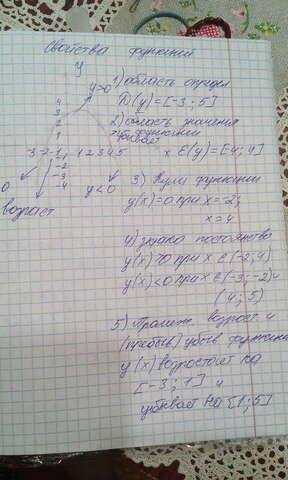 Свойства функции
y
y>0
1) область опреде
D(y)=[-3;5]
4
3
2
1
2) область значения
функции
убывает
3 2 1, 1 2 3 4 5 x E(y)=[-4;4]
-2
-3
-4
0
возраст
y<0
3) Нули функции
y(x)=0 при x=-2;
x=4
4) знако постоянство
y(x)>0 при x∈(-2;4)
y(x)<0 при x∈(-3;-2) и
(4;5)
5) Промеж. возраст. и
убыв функции
y(x) возростает на
[-3;1] и
убывает на [1;5]